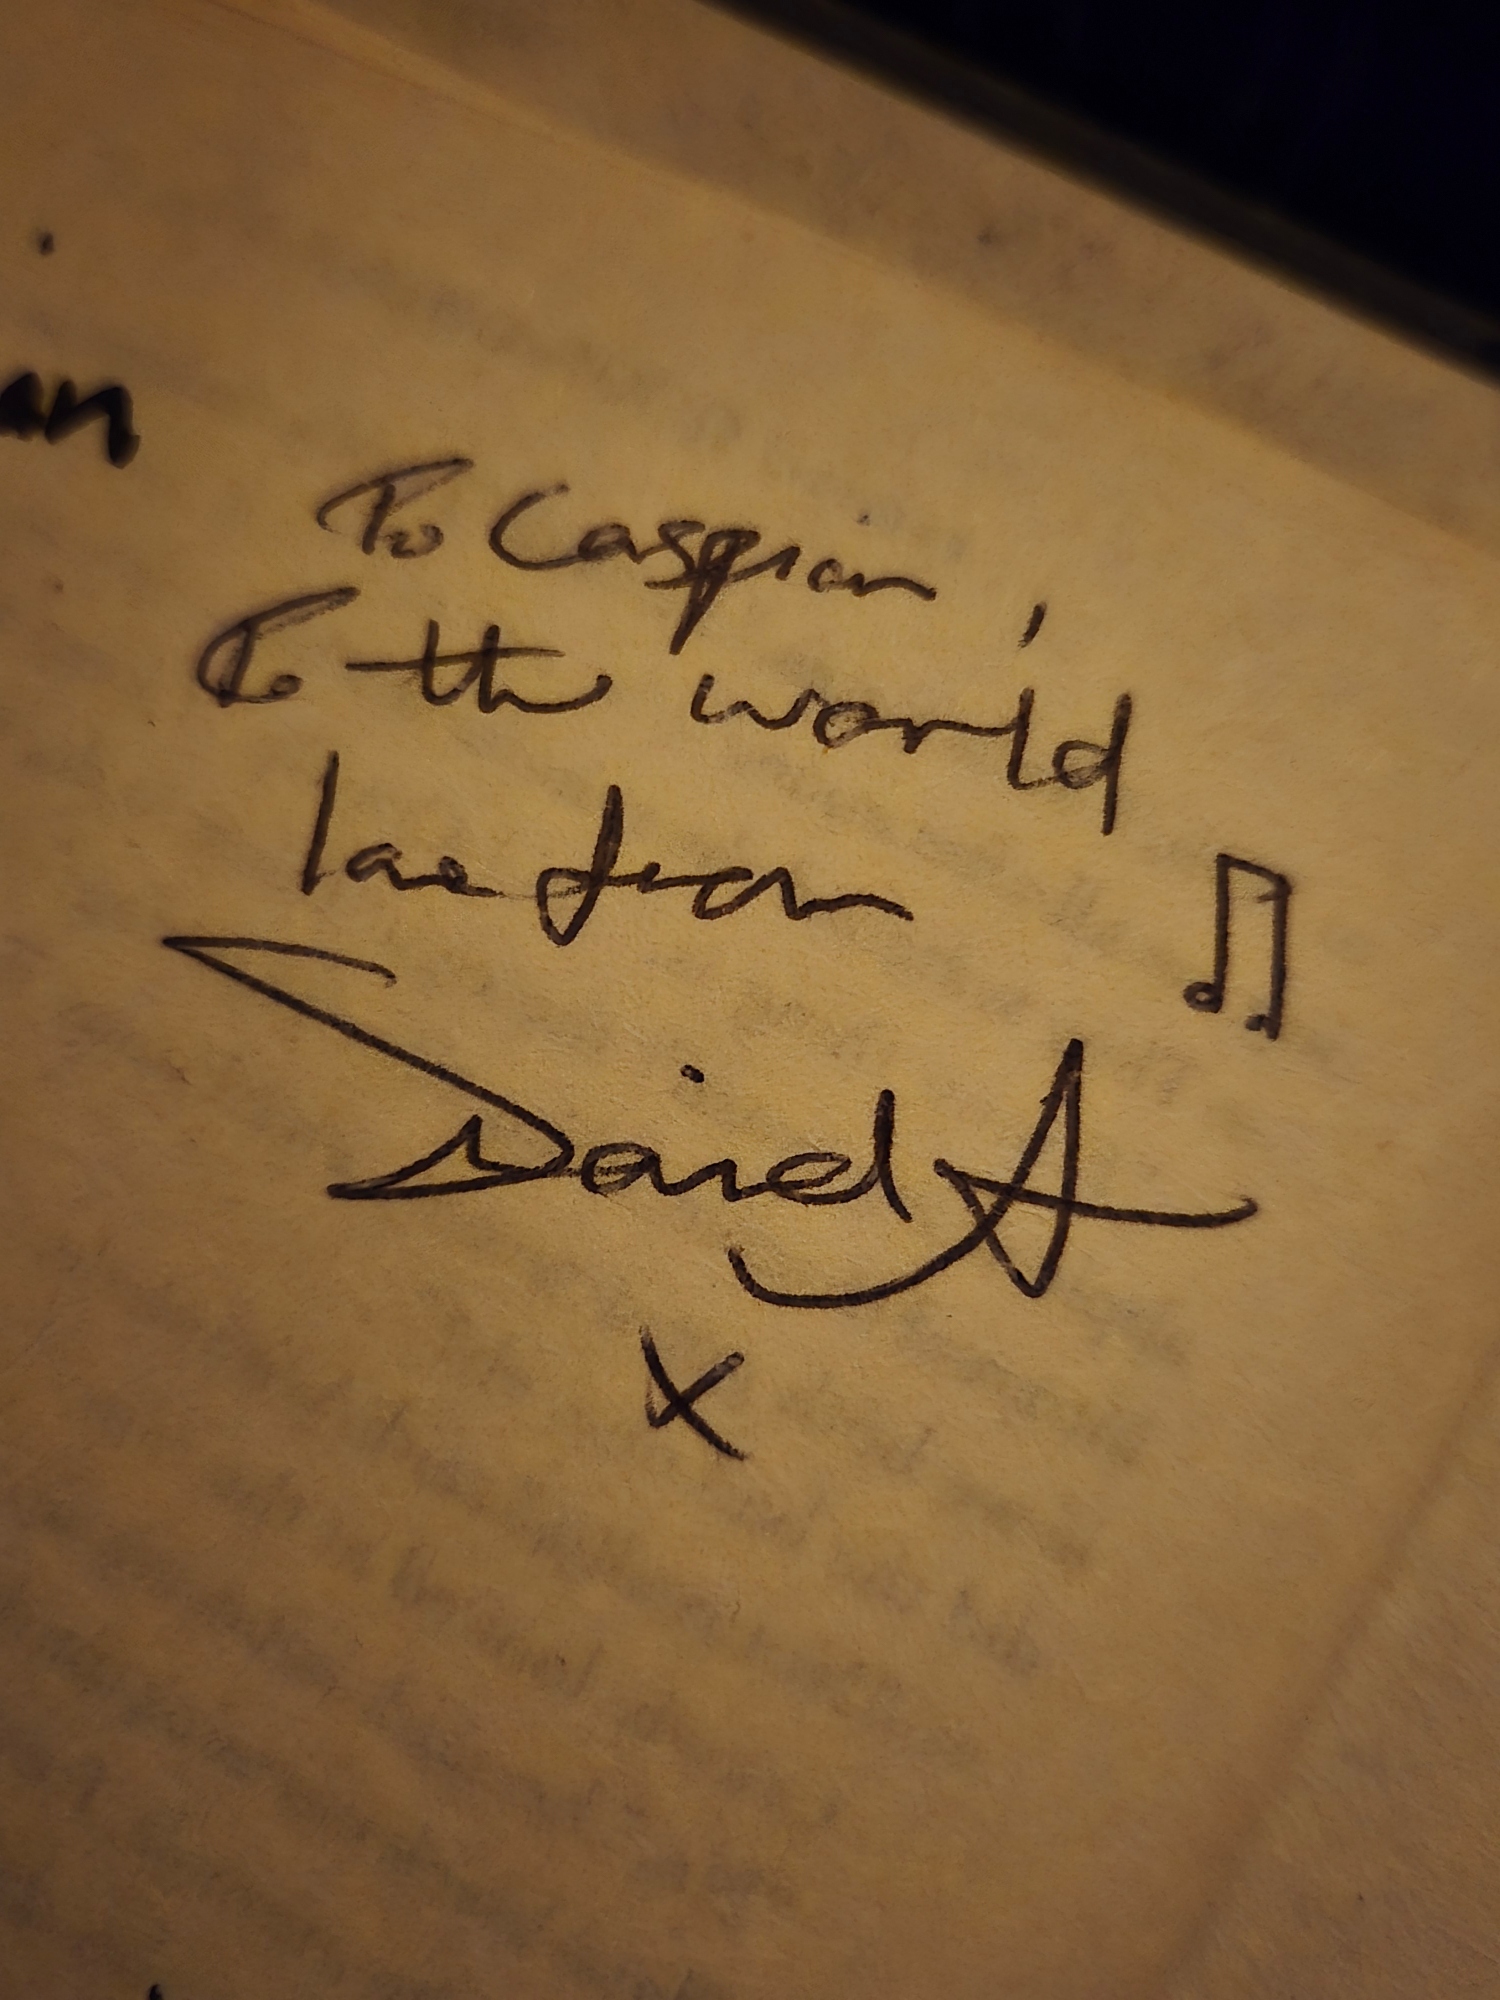 an
To Caspian,
To the world
love from
David A
x